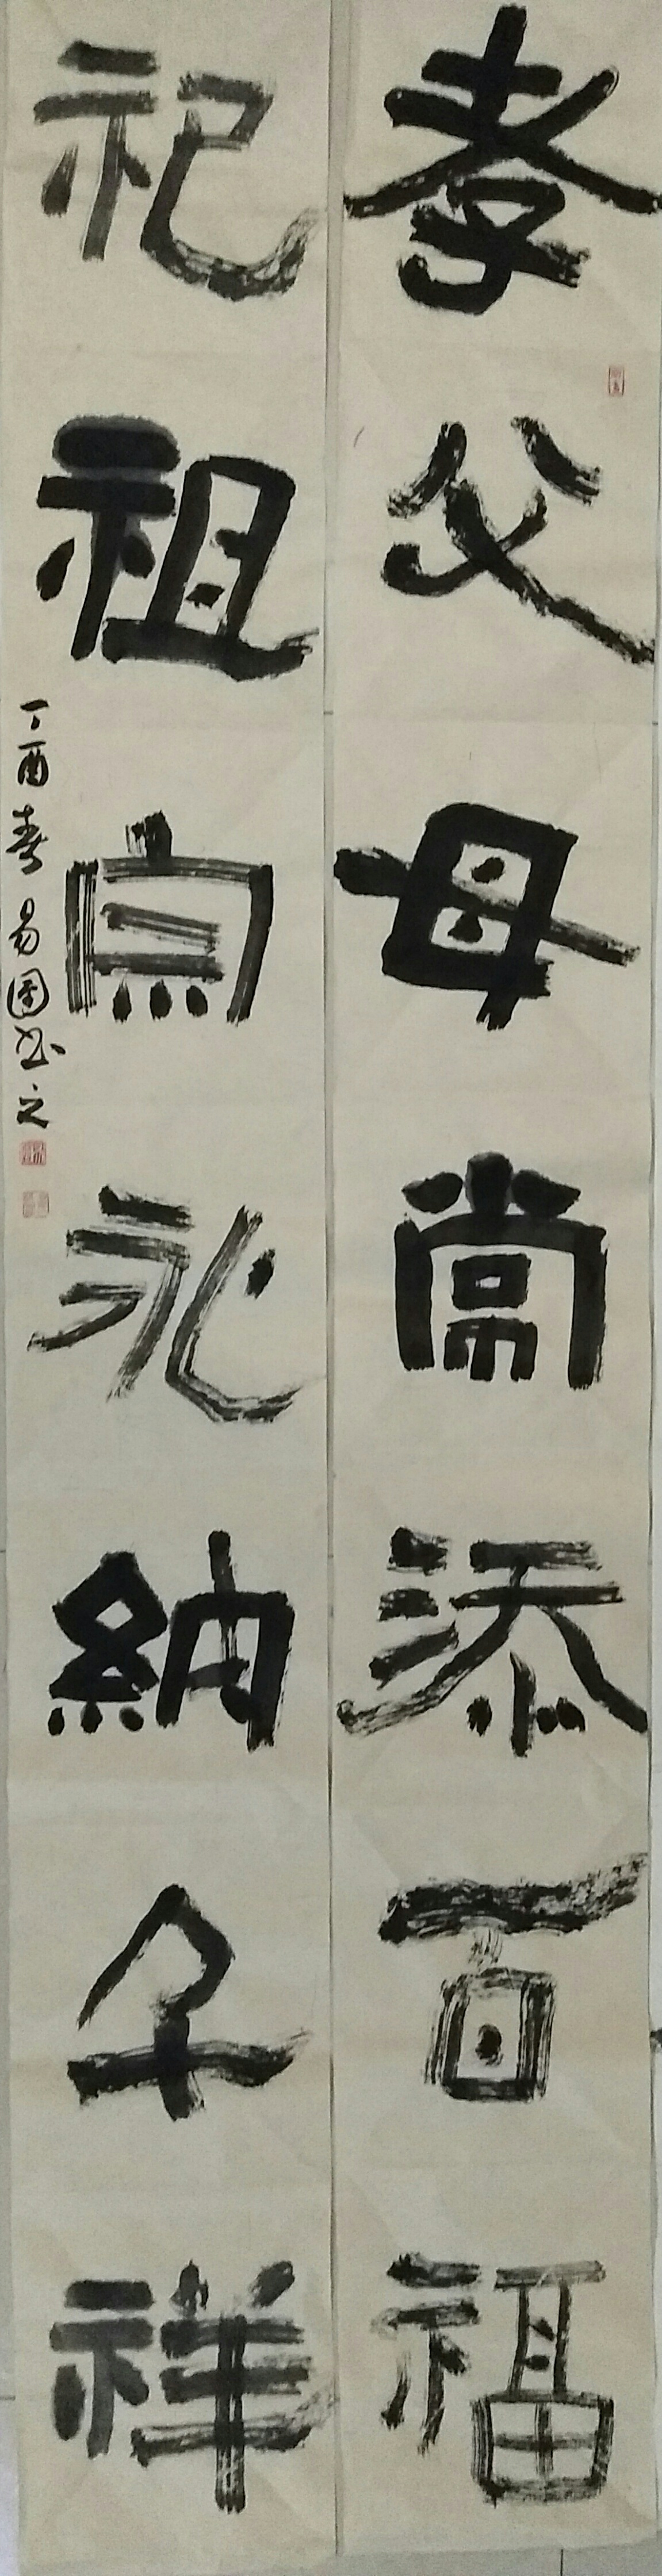 孝父母常添百福
祀祖宗永納千祥
丁酉春易園書之